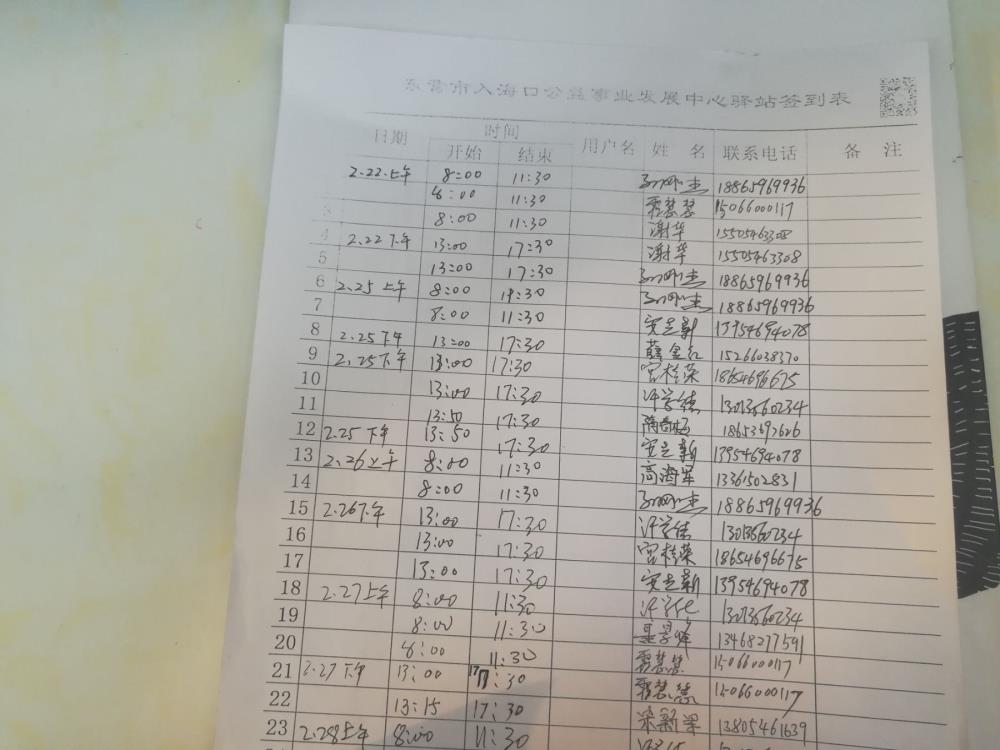 东营市入海口公益事业发展中心驿站签到表
日期 时间 用户名 姓 名 联系电话 备 注
开始 结束
2.22.上午 8:00 11:30 18865969936
8:00 11:30 霍慧慧 15066000117
3 8:00 11:30 谢华 15505463308
4 2.22下午 13:00 17:30 谢华 15505463308
5 13:00 17:30 18865969936
6 2.25上午 8:00 11:30 18865969936
7 8:00 11:30 安立新 13954694078
8 2.25下午 13:00 17:30 薛金红 15266038370
9 2.25下午 13:00 17:30 宫桂荣 18654696675
10 13:00 17:30 许学德 13013560234
11 13:50 17:30 18653692626
12 2.25下午 13:50 17:30 安立新 13954694078
13 2.26上午 8:00 11:30 高海军 13361502831
14 8:00 11:30 18865969936
15 2.26下午 13:00 17:30 许学德 13013560234
16 13:00 17:30 宫桂荣 18654696675
17 13:00 17:30 安立新 13954694078
18 2.27上午 8:00 11:30 13013560234
19 8:00 11:30 13468277591
20 8:00 11:30 霍慧慧 15066000117
21 2.27下午 13:00 17:30 霍慧慧 15066000117
22 13:15 17:30 宋新军 13805461639
23 2.28上午 8:00 11:30